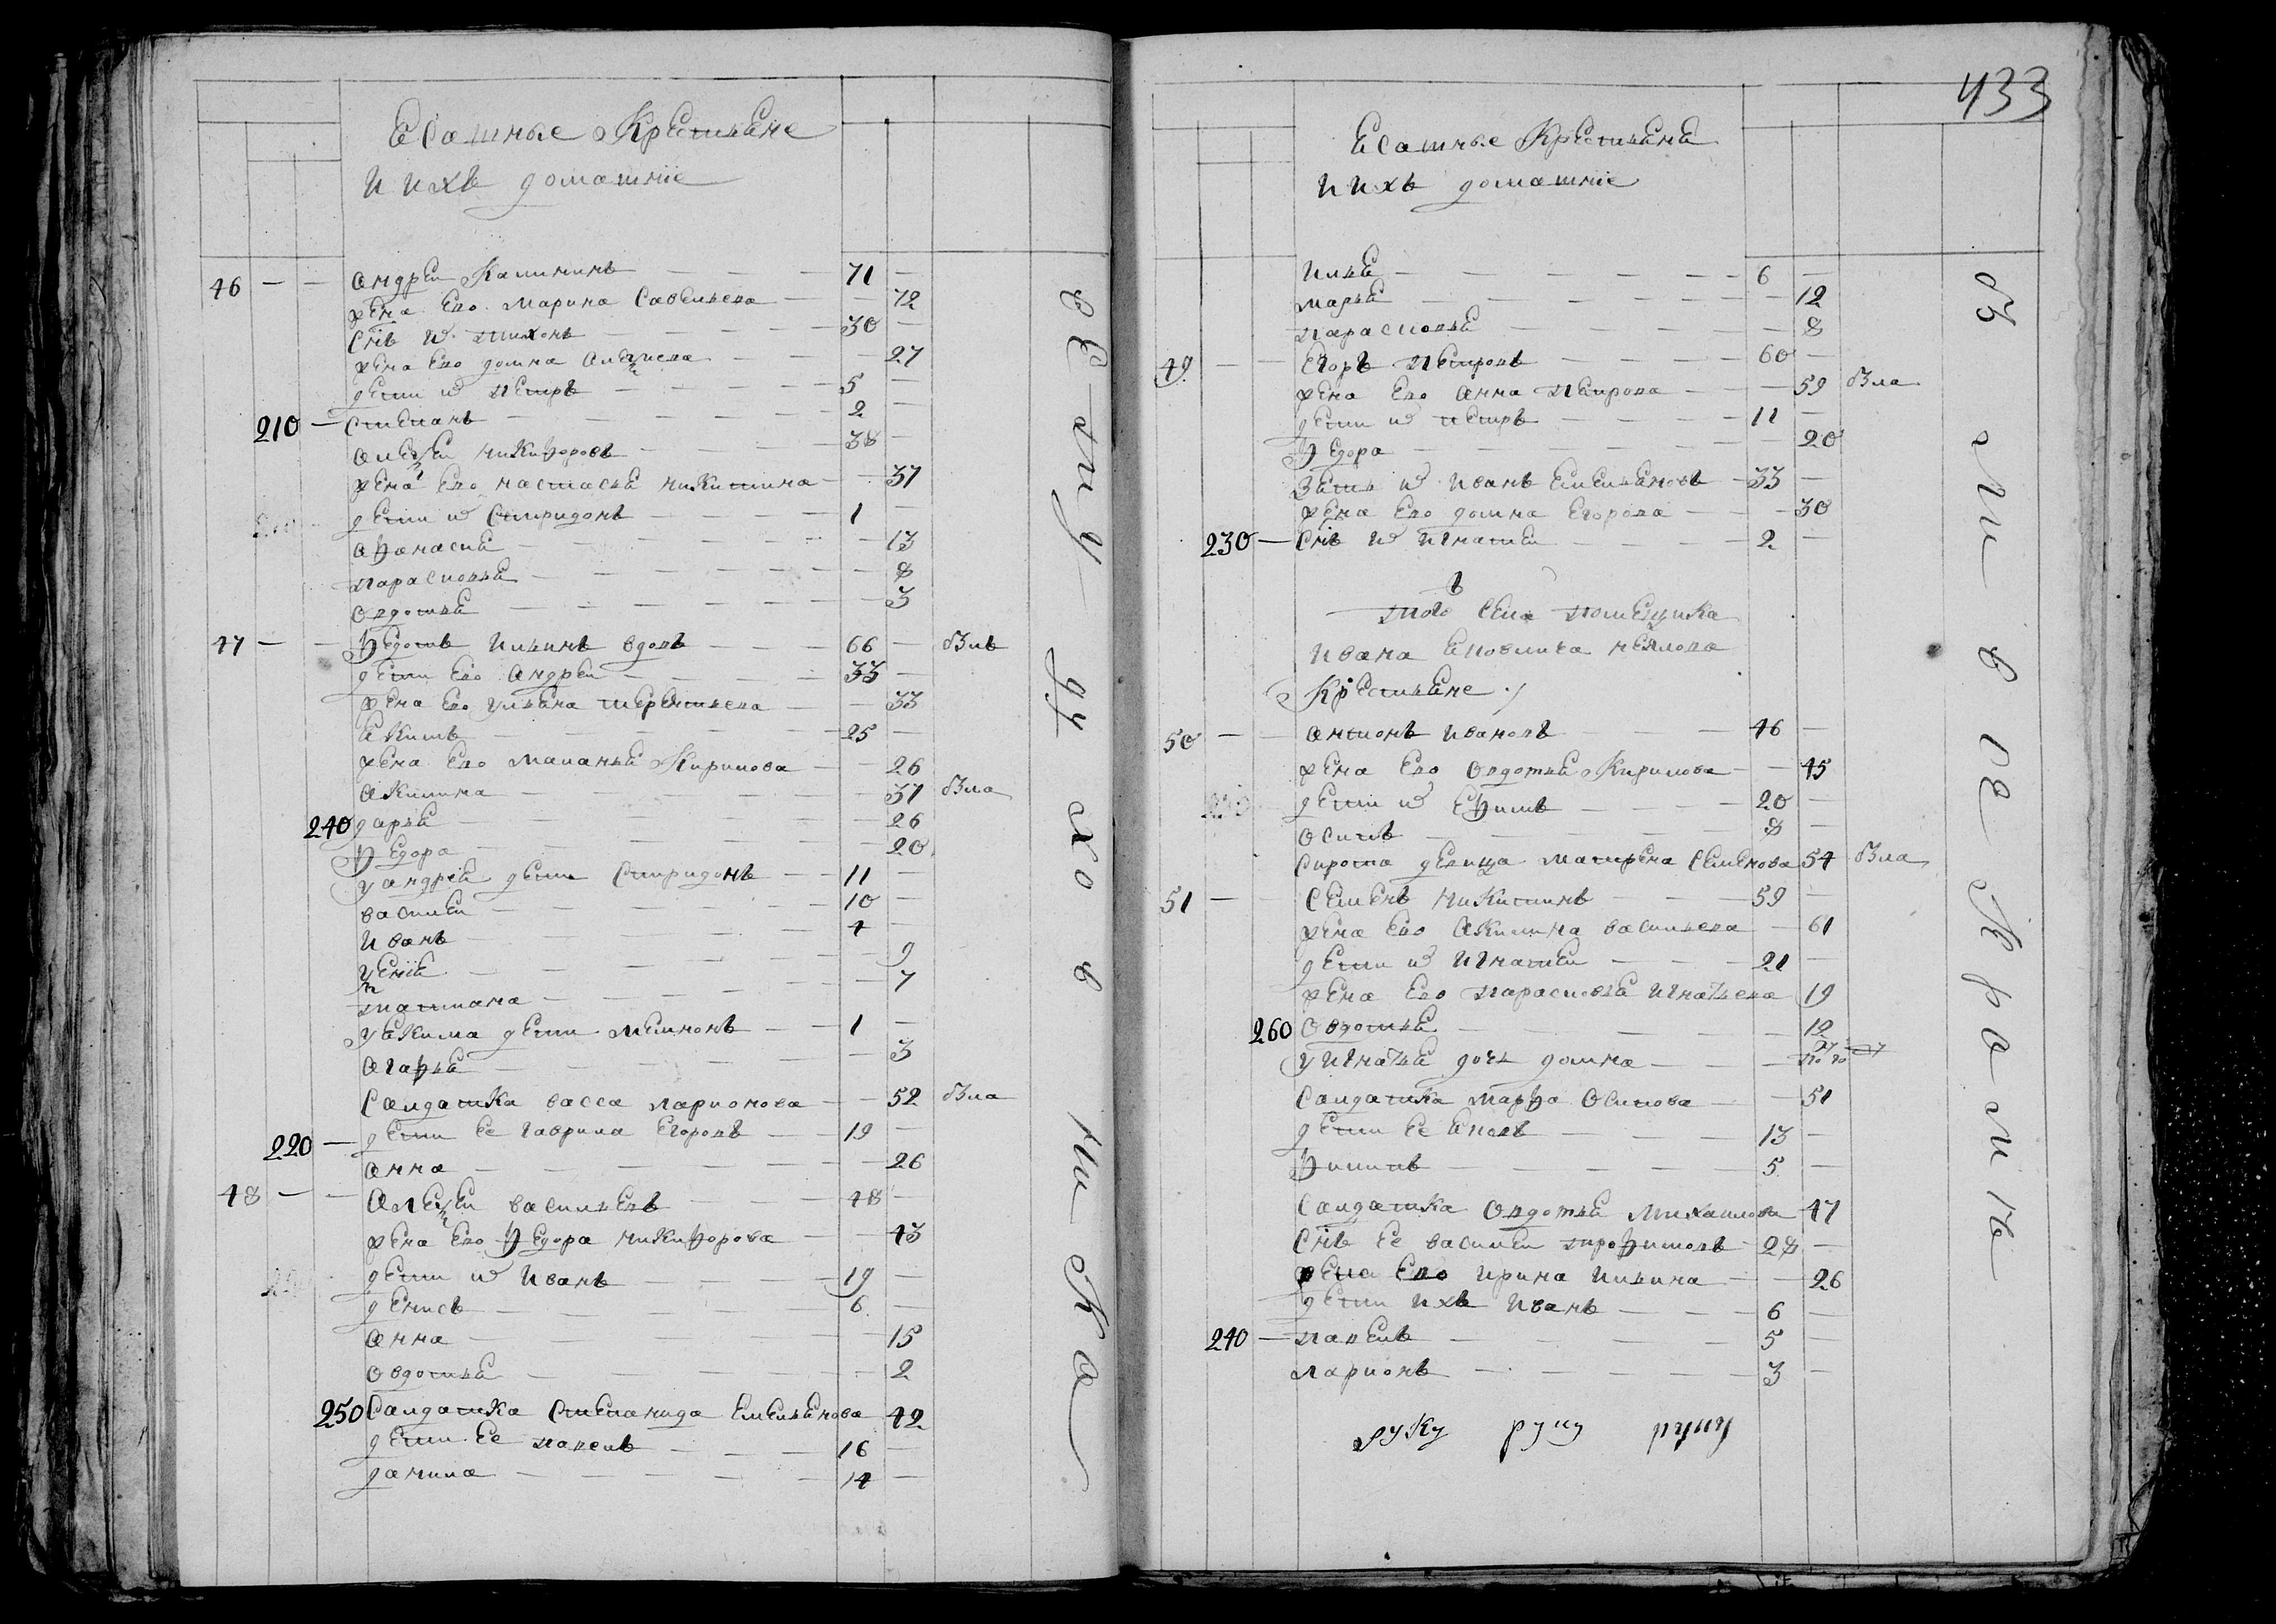 Есашные Крестьяне
и ихъ домашнїе
46 — — Андрей Калининъ — 71 —
жена ево Марина Савельева — 72
Снъ ѿ Тихонъ — 30 —
жена ево Домна Алеѯиева — 27
дети ѿ Петръ — 5 —
210 — Степанъ — 2 —
Алеѯей Никифоровъ — 38 —
жена ево Настасья Никитина — 37
дети ѿ Спиридонъ — 1 —
Афанасия — 13
Парасковья — 8
Овдотья — 3
47 — — Федотъ Ильинъ вдовъ — 66 — бзлъ
дети ево Андрей — 33 —
жена ево Ульяна Терентьева — 33
Якимъ — 25 —
жена ево Маланья Кирилова — 26
Акилина — 37 бзла
240 Дарья — 26
Федора — 20
у Андрея дети Спиридонъ — 11 —
Василей — 10 —
Иванъ — 4 —
9
Татиана — 7
у Якима дети — 1 —
Агафья — 3
Салдатка Васса Ларионова — 52 бзла
220 — дети ее Гаврила Егоровъ — 19 —
Анна — 26
48 — — Алеѯей Васильевъ — 48 —
жена ево Федора Никифорова — 43
дети ѿ Иванъ — 19 —
Денисъ — 6 —
Анна — 15
Овдотья — 2
250 Салдатка Степанида Емельянова 42
дети ее Павелъ — 16 —
Данила — 14 —
сету духов ника
433
Есашные Крестьяня
и ихъ домашнїе
Илья — 6 —
Марья — 12
Парасковья — 8
49 — — Егоръ Петровъ — 60 —
жена ево Анна Петрова — 59 бзла
дети ѿ Петръ — 11 —
Федора — 20
Зять ѿ Иванъ Емельяновъ — 33 —
жена ево Домна Егорова — 30
230 — Снъ ѿ Игнатей — 2 —
того села помещика
Ивана Яковлича
Крестьяне
50 — — Антонъ Ивановъ — 46 —
жена ево Овдотья Кирилова — 45
дети ѿ Ефимъ — 20 —
Осипъ — 8 —
Сирота девица Матрена Семенова 54 бзла
51 — — Семенъ Никитинъ — 59 —
жена ево Акилина Васильева — 61
дети ѿ Игнатей — 21 —
жена ево Парасковья Игнатьева 19
260 Овдотья — 12
у Игнатья дочь Домна —
Салдатка Марфа Осипова — 51
дети ее Яковъ — 13 —
Филипъ — 5 —
Салдатка Овдотья Михаилова 47
Снъ ее Василей Трофимовъ 28 —
жена ево Ирина Ильина — 26
дети ихъ Иванъ — 6 —
240 — Павелъ — 5 —
Ларионъ — 3 —
руку руку